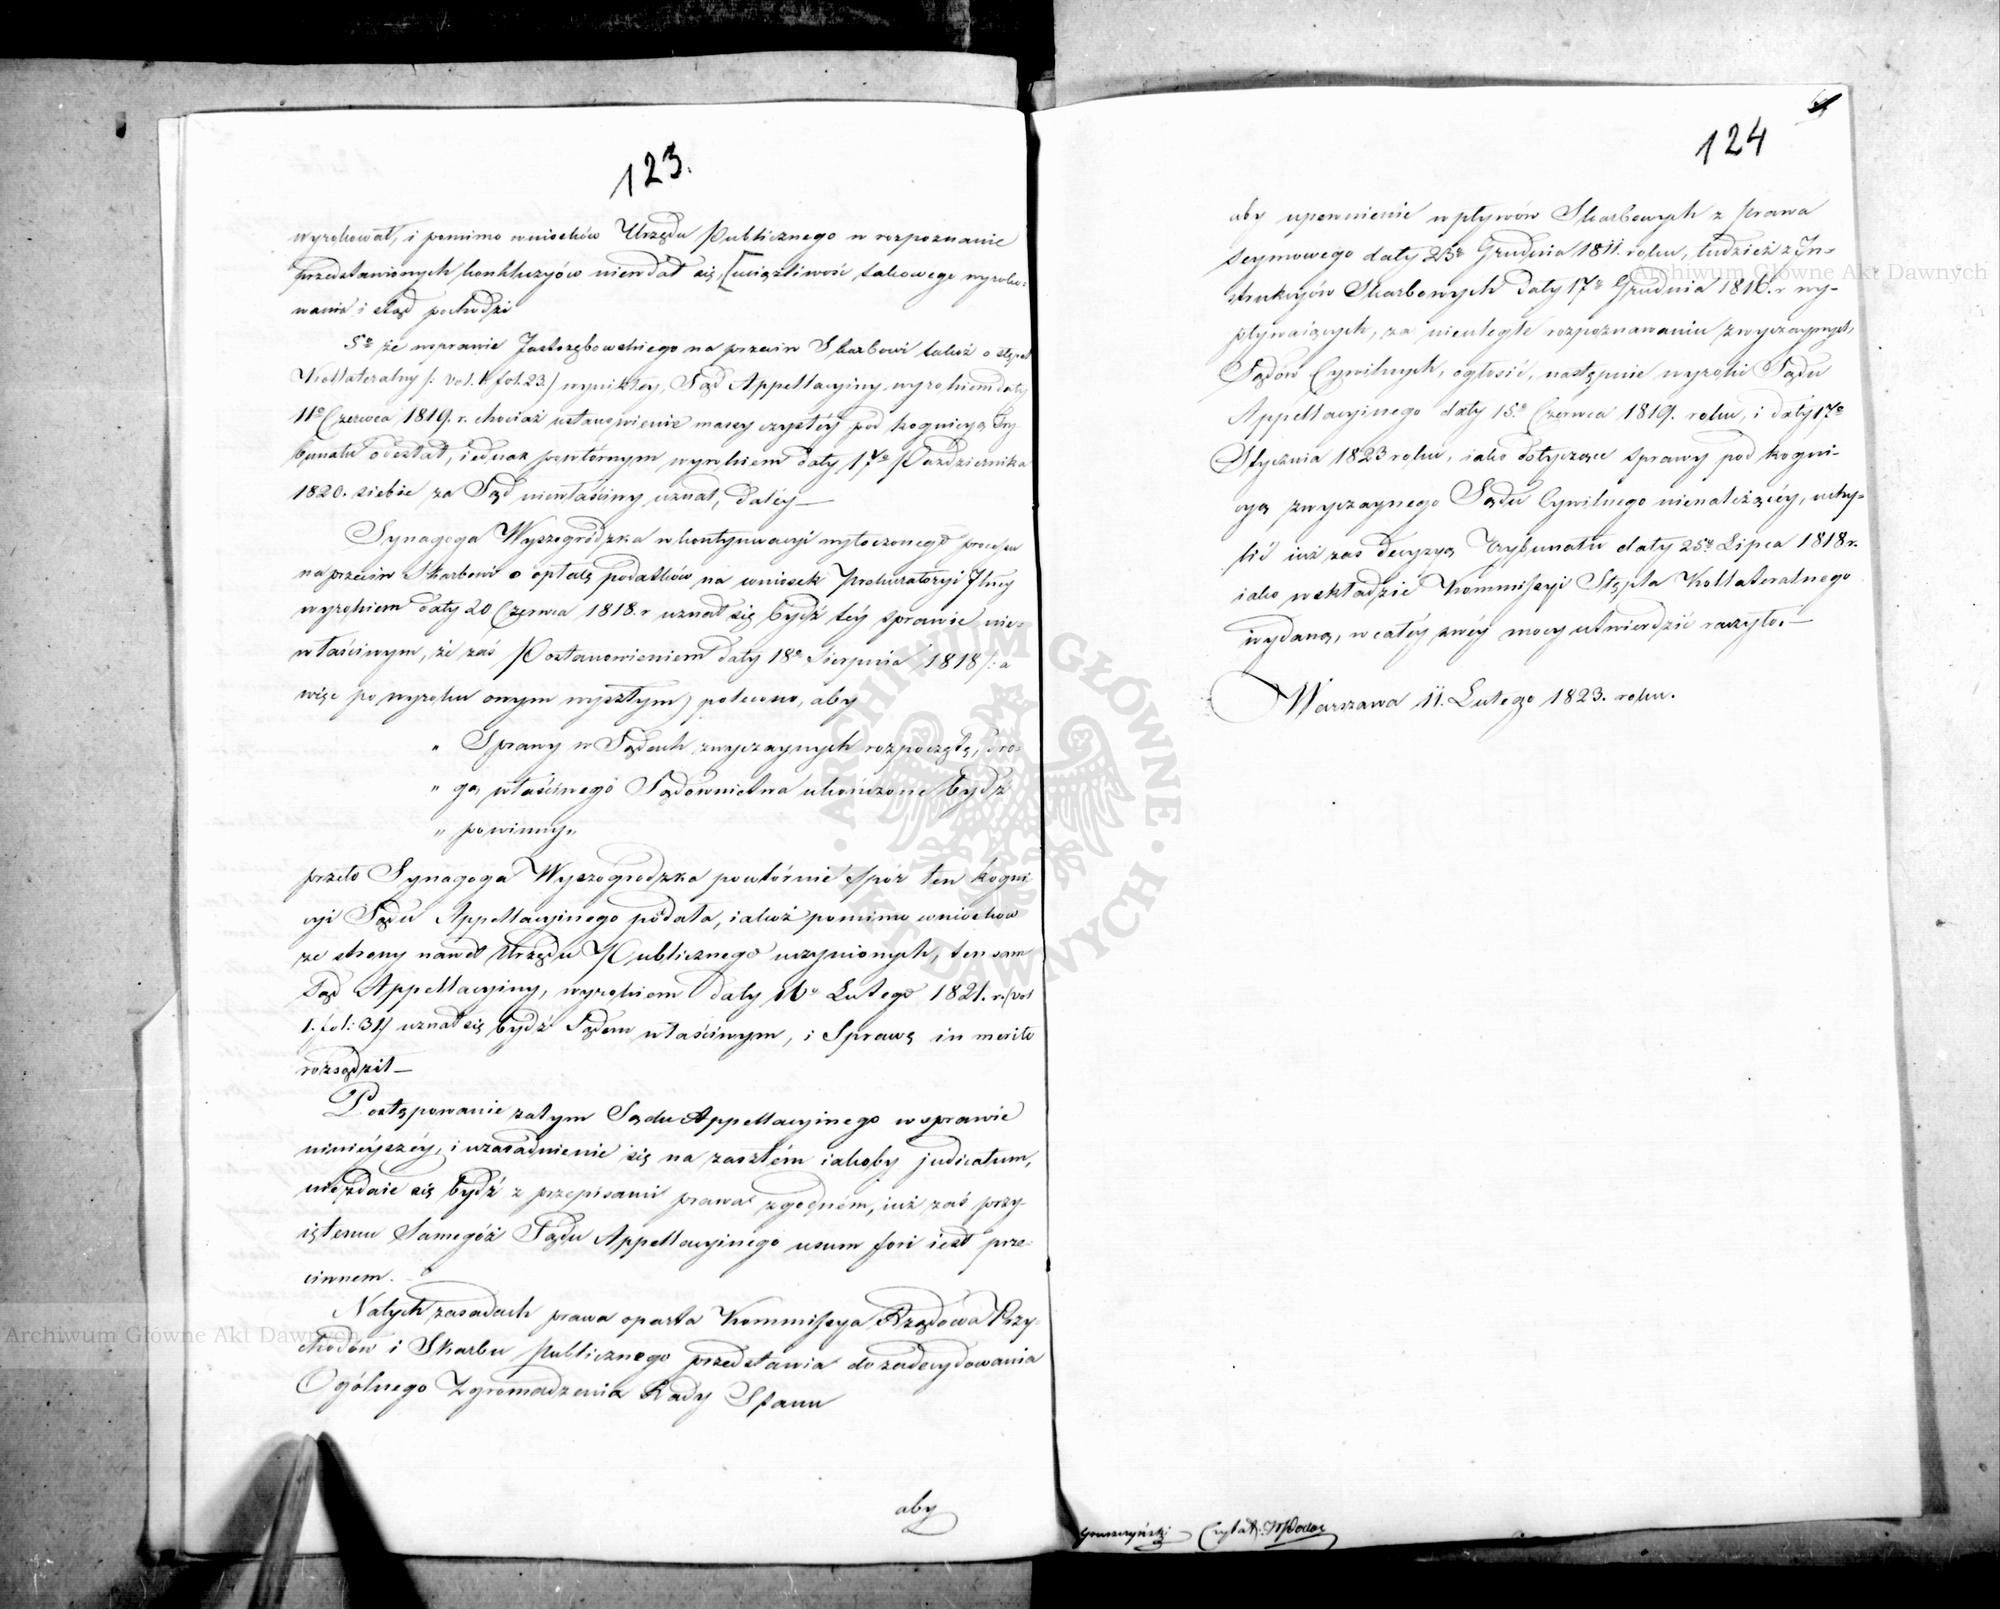 123.
wyrokował, i pomimo wniosków Urzędu Publicznego w rozpoznanie
przedstawionych konkluzyów niewdał się, [uciążliwość takowego wyroko-
wania i stąd pochodzi
5º że wsprawie Jastrzębowskiego na przeciw Skarbowi takoż o stępel
Kollateralny /: vol. I. fol. 23./ wynikłey, Sąd Appellacyiny wyrokiem daty
11º Czerwca 1819. r. chociaż ustanowienie massy czystéy pod kognicyą Try
bunału odesłał, iednak powtórnym wyrokiem daty 17º Października
1820. siebie za Sąd niewłaściwy uznał, daléy —
Synagoga Wyszogrodzka w kontynuacyi wytoczonego processu
naprzeciw Skarbowi o opłatę podatków na wniosek Prokuratoryi Jlney
wyrokiem daty 20 Czerwca 1818. r uznał się bydź téy sprawie nie-
właściwym, że zaś Postanowieniem daty 18º Sierpnia 1818 /: a
więc po wyroku onym wyszłym) polecono, aby
„ Sprawy w Sądach zwyczaynych rozpoczętę, dro-
„ gą właściwego Sądownictwa ukończone bydź
„ powinny„
przeto Synagoga Wyszogrodzka powtórnie spór ten kogni
cyi Sądu Appellacyinego podała, iakoż pomimo wniosków
ze strony nawet Urzędu Publicznego uczynionych, ten sam
Sąd Appellacyiny, wyrokiem daty 16º Lutego 1821. r. (vol
I. fol: 31) uznał się bydź Sądem właściwym, i Sprawę in merito
rozsądził —
Postępowanie zatym Sądu Appellacyinego wsprawie
ninieyszéy, i uzasadnienie się na zaszłém iakoby judicatum,
niezdaie się bydź z przepisami prawa zgodném, iuż zaś przy
iętemu Samegóż Sądu Appellacyinego usum fori iest prze-
ciwnem. —
Natych zasadach prawa oparta Kommissya Rządowa Przy-
chodów i Skarbu Publicznego przedstawia do zadecydowania
Ogólnego Zgromadzenia Rady Stanu
aby
124
aby upewnienie wpływów Skarbowych z prawa
Seymowego daty 23º Grudnia 1811. roku, tudzież z In-
strukcyów Skarbowych daty 17º Grudnia 1816. r wy-
pływaiących, za nieuległe rozpoznawaniu zwyczaynych
Sądów Cywilnych, ogłosić, następnie wyroki Sądu
Appellacyinego daty 15º Czerwca 1819. roku, i daty 17º
Stycznia 1823 roku, iako dotyczące sprawy pod kogni-
cyą zwyczaynego Sądu Cywilnego nienależącéy, uchy-
lić iuż zaś decyzyą Trybunału daty 25º Lipca 1818 r.
iako w składzie Kommissyi Stępla Kollateralnego
wydaną, w całéy swéy mocy utwierdzić raczyło. —
Warszawa 11. Lutego 1823. roku.
Gruszczyński Czytał:
Archiwum Główne Akt Dawnych
Archiwum Główne Akt Dawnych
ARCHIWUM GŁÓWNE AKT DAWNYCH